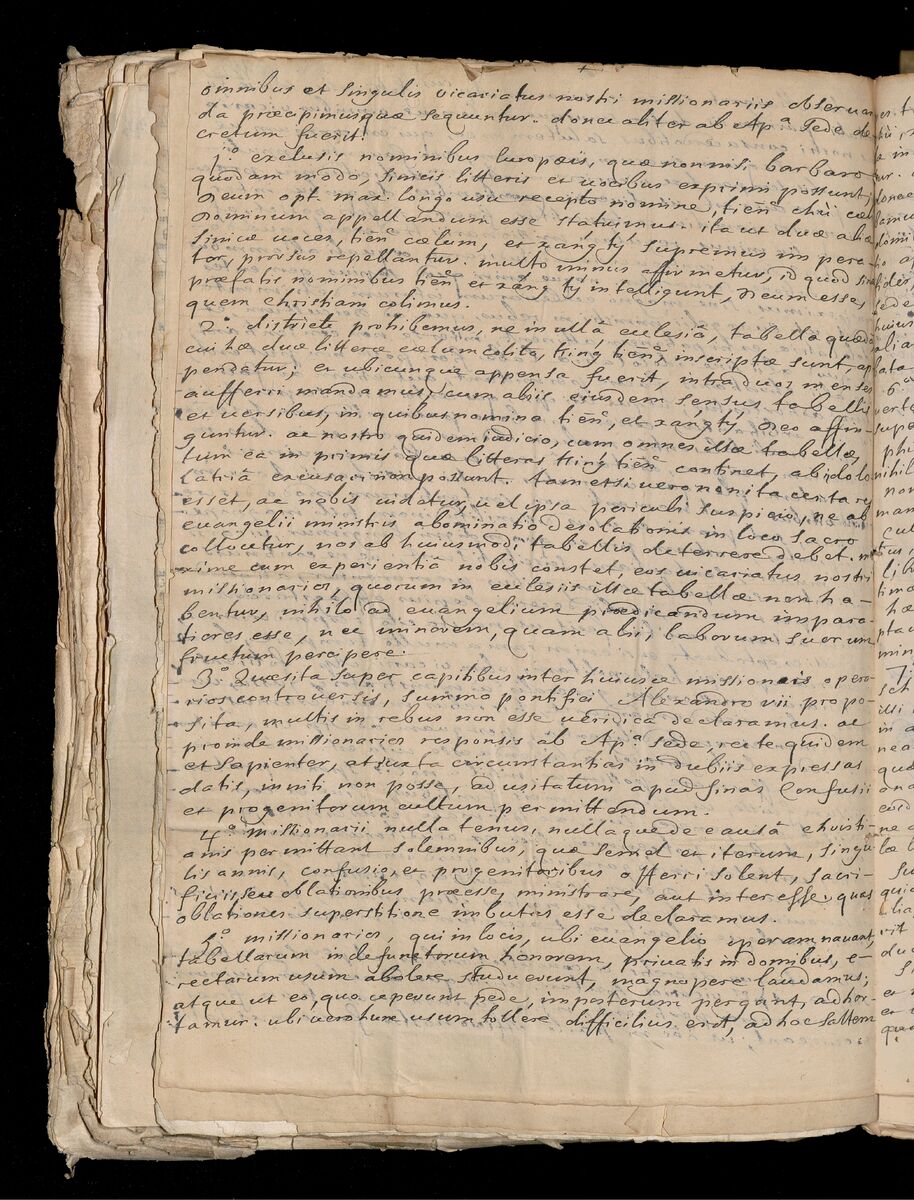 omnibus et singulis vicariatus nostri missionariis observan
da præcipimusquæ sequuntur. donec aliter ab Ap.ª Sede de
cretum fuerit.
1.º exclusis nominibus Europæis, quæ non nisi barbaro
quodam modo, sinicis litteris et vocibus exprimi possunt;
Deum opt. max. longo usu recepto nomine, tiēn chù cœli
Dominum appellandum esse statuimus. ita ut duæ aliæ
sinicæ voces, tiēn cœlum, et xangtý supremus impera-
tor, prorsus repellantur. multo minus affirmetur, id quod sinæ
præfatis nominibus tiēn et xáng tý intelligunt, Deum esse,
quem christiani colimus.
2.º districte prohibemus, ne in ullâ ecclesiâ, tabella quædam
cui hæ duæ litteræ cælum colito, king tiēn, inscriptæ sunt, ap
pendatur; et ubicunque appensa fuerit, intra duos menses
aufferri mandamus, cum aliis eiusdem sensus tabellis
et versibus, in quibus nomina tiēn, et xangtý Deo affin-
guntur. ac nostro quidem iudicio, cum omnes illæ tabellæ,
tum ea in primis quæ litteras king tiēn continet, ab idolo
latriâ excusari non possunt. tametsi vero non ita certa res
esset, ac nobis videtur, vel ipsa periculi suspicio, ne ab
evangelii ministris abominatio desolationis in loco sacro
collocetur, nos ab huiusmodi tabellis deterrere debet. ma
xime cum experientiâ nobis constet, eos vicariatus nostri
missionarios, quorum in ecclesiis illæ tabellæ non ha-
bentur, nihilo ad evangelium prædicandum impara-
tiores esse, nec minorem, quam alii, laborum suorum
fructum percipere.
3.º Quæsita super capitibus inter huiusce missionis opera-
rios controversis, summo pontifici Alexandro vii propo-
sita, multis in rebus non esse veridica declaramus. ac
proinde missionarios responsis ab Ap.ª sede, recte quidem
et sapienter, at juxta circumstantias in dubiis expressas
datis, inniti non posse, ad usitatum apud sinas Confusii
et progenitorum cultum permittendum.
4.º missionarii nullatenus, nullaque de causâ christi-
anis permittant solemnibus, quæ semel et iterum, singu
lis annis, confusio, et progenitoribus offerri solent, sacri-
ficiis seu oblationibus præesse, ministrare, aut interesse, quas
oblationes superstitione imbutas esse declaramus.
5.º missionarios, qui in locis, ubi evangelio operam navant,
tabellarum in defunctorum honorem, privatis in domibus, e-
rectarum usum abolere studuerunt, magnopere laudamus;
atque ut eo, quo ceperunt pede, in posterum pergant, adhor-
tamur. ubi vero hunc usum tollere difficilius erit, ad hoc saltem